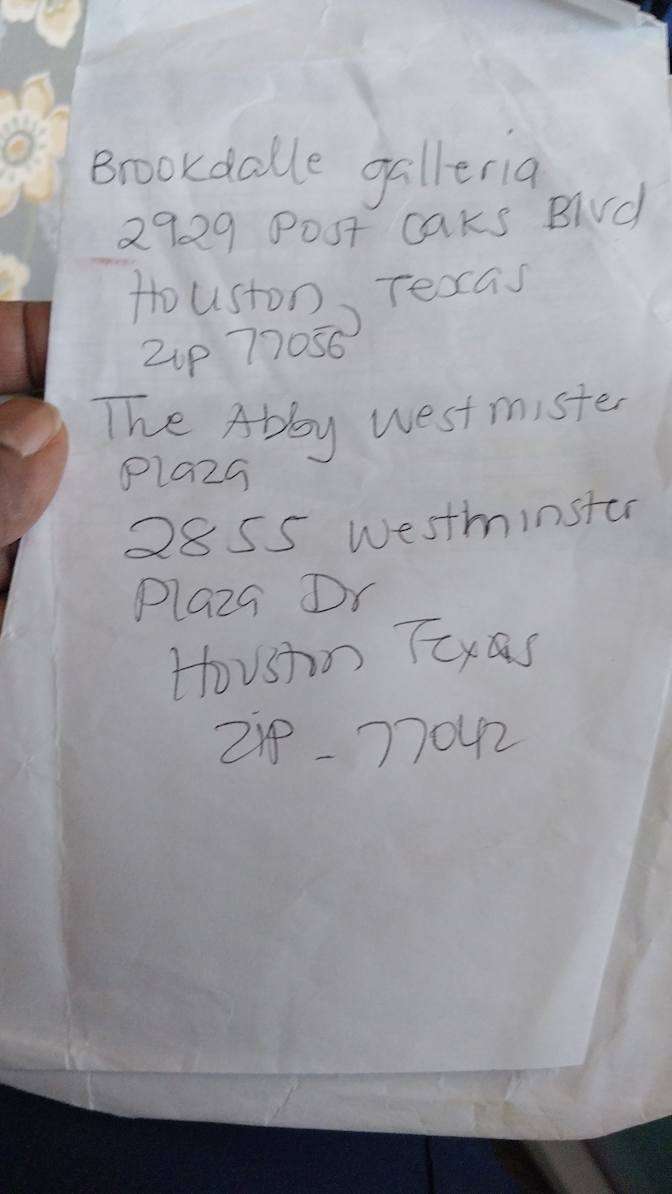 Brookdalle galleria
2929 Post oaks Blvd
Houston, Texas
Zip 77056
The Abby westmister
Plaza
2855 westminster
Plaza Dr
Houston Texas
Zip - 77042